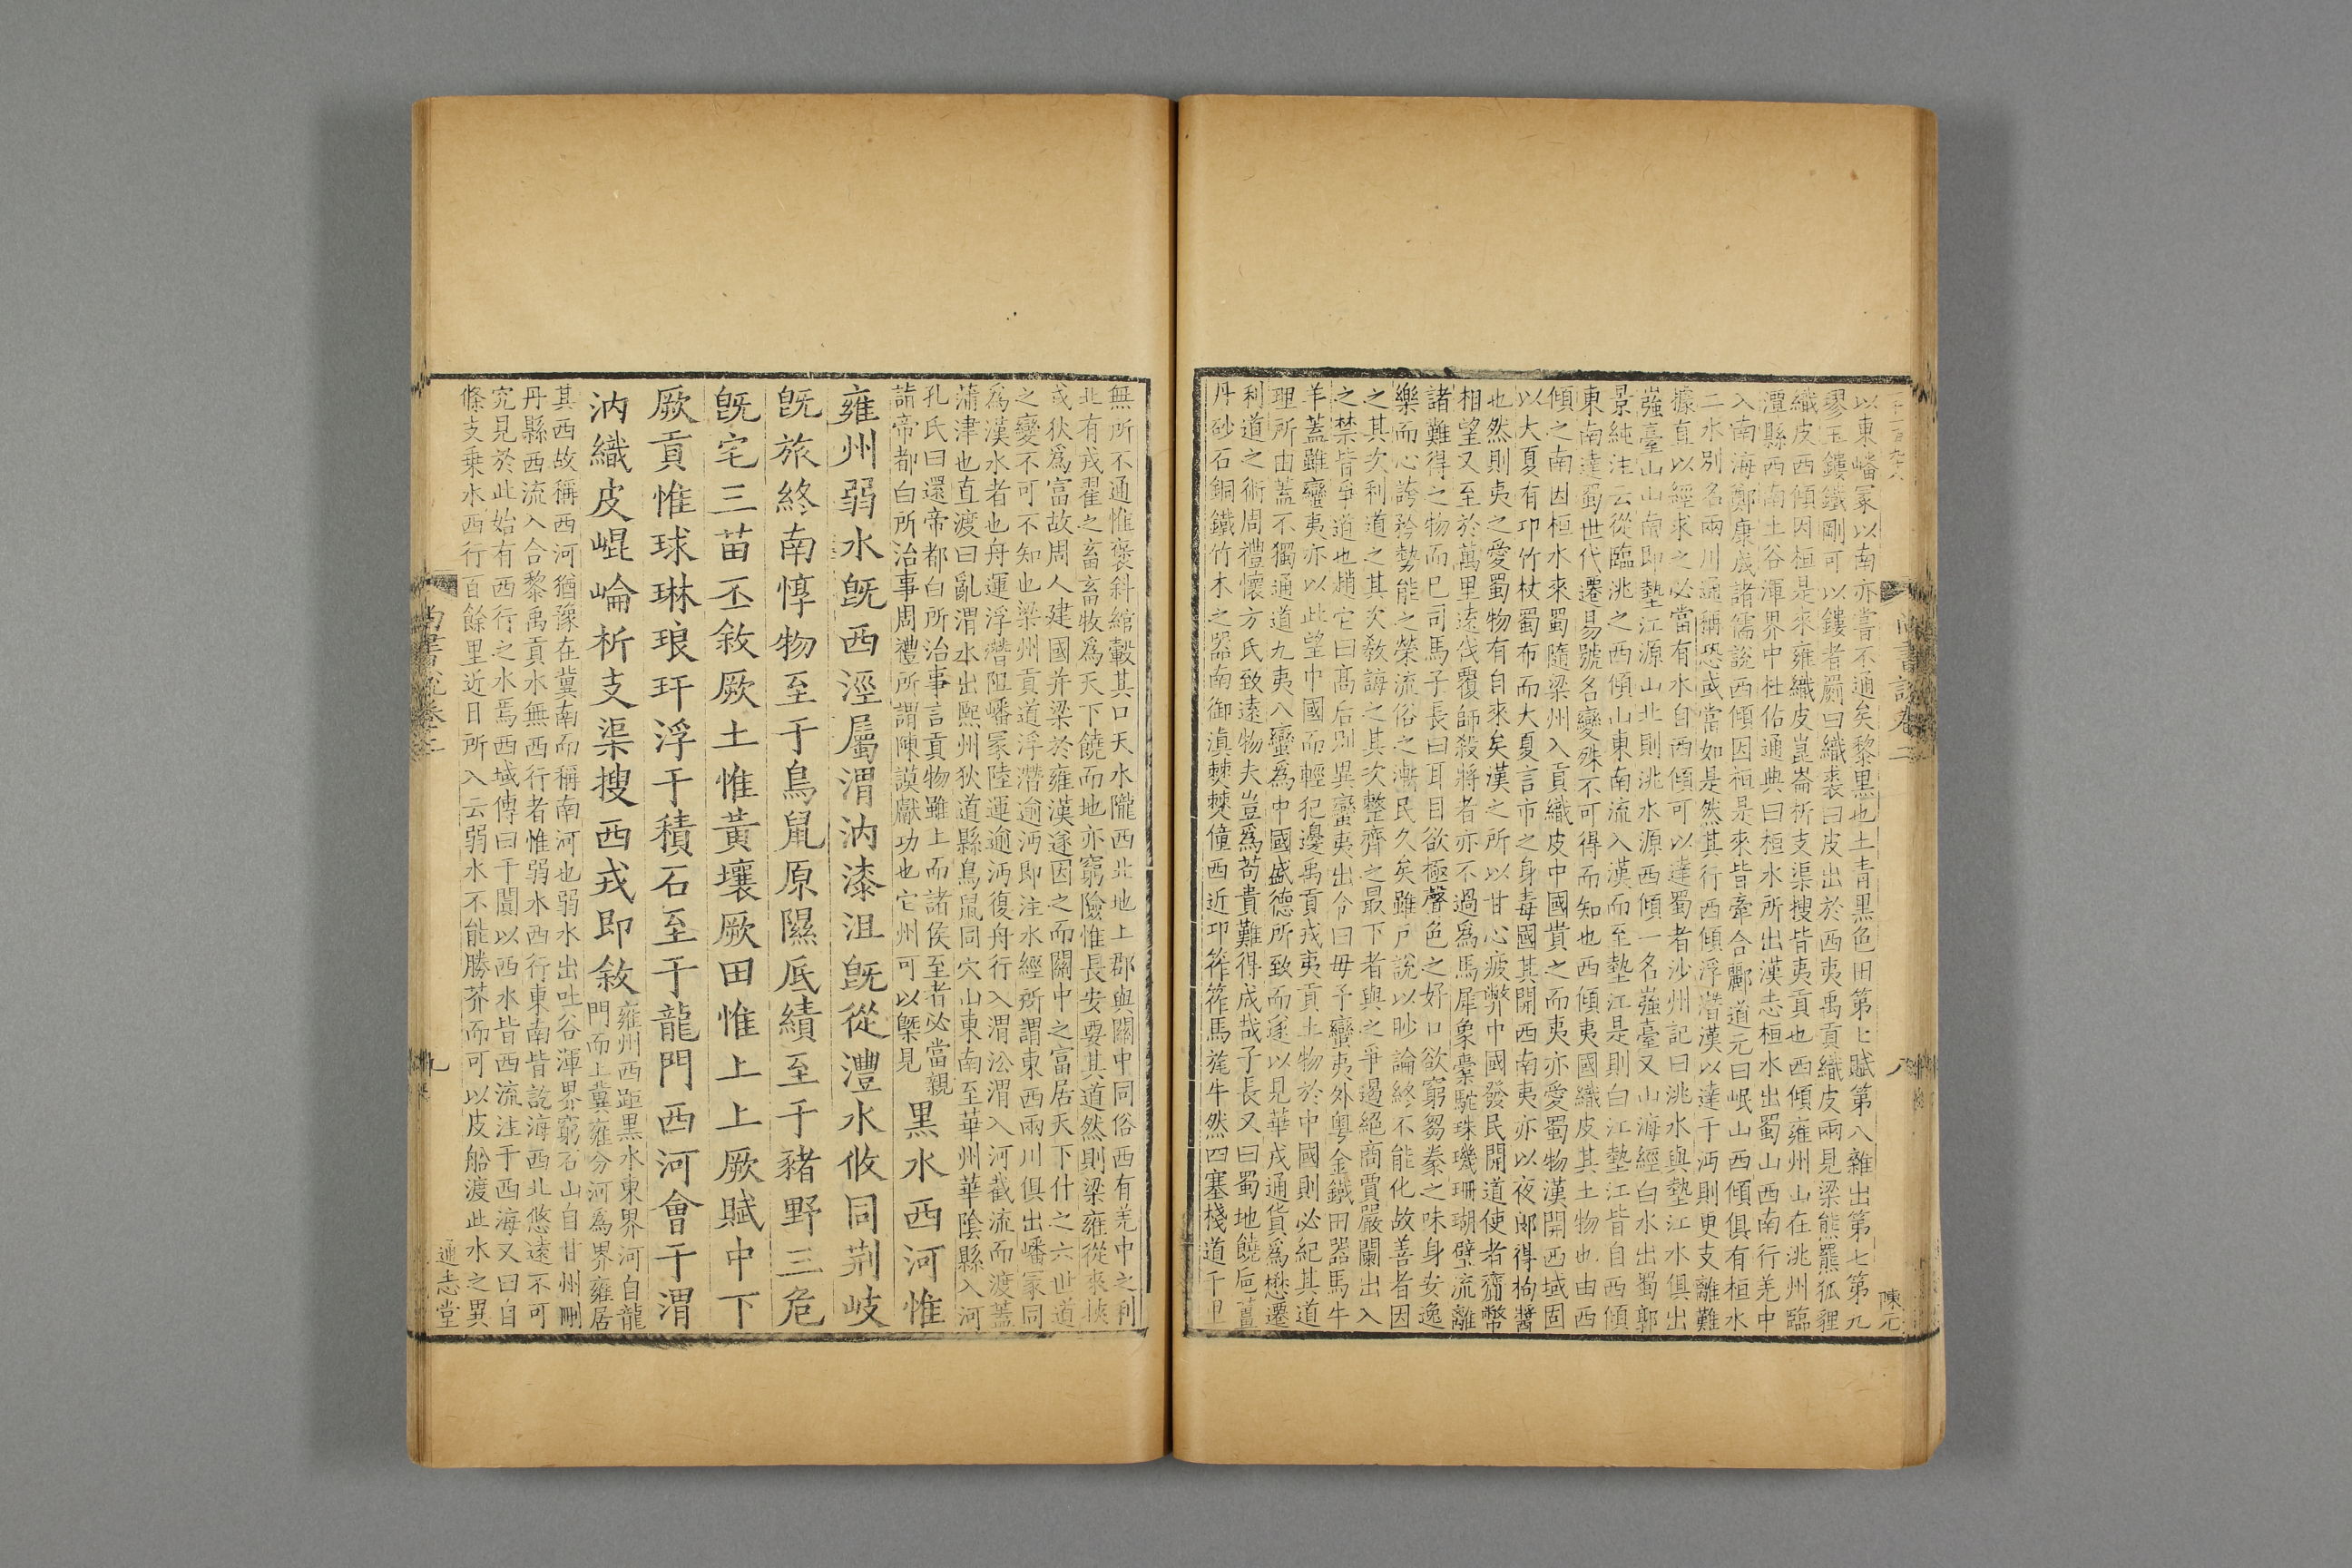 以東嶓冢以南亦嘗不通矣黎黑也土青黑色田第七賦第八雜出第七第九
璆玉鏤鐵剛可以鏤者罽曰織裘曰皮出於西夷禹貢織皮兩見梁熊羆狐貍
織皮西傾因桓是來雍織皮崑崙析支渠搜皆夷貢也西傾雍州山在洮州臨
潭縣西南土谷渾界中杜佑通典曰桓水所出漢志桓水出蜀山西南行羌中
入南海鄭康成諸儒說西傾因桓是來皆牽合酈道元曰岷山西傾俱有桓水
二水別名兩川通稱恐或當如是然其行西傾浮潛漢以達于沔則更支離難
據直以經求之必當有水自西傾可以達蜀者沙州記曰洮水與墊江水俱出
嵹臺山山南即墊江源山北則洮水源西傾一名嵹臺又山海經白水出蜀郭
景純注云從臨洮之西傾山東南流入漢而至墊江是則白江墊江皆自西傾
東南達蜀世代遷易號名變殊不可得而知也西傾夷國織皮其土物也由西
傾之南因桓水來蜀隨梁州入貢織皮中國貴之而夷亦愛蜀物漢開西域固
以大夏有邛竹杖蜀布而大夏言市之身毒國其開西南夷亦以夜郎得枸醬
也然則夷之愛蜀物有自來矣漢之所以甘心疲弊中國發民開道使者齎幣
相望又至於萬里遠伐覆師殺將者亦不過爲馬犀象橐駝珠璣珊瑚璧流離
諸難得之物而已司馬子長曰耳目欲極聲色之好口欲窮芻豢之味身安逸
樂而心誇矜勢能之榮流俗之漸民久矣雖戶說以眇論終不能化故善者因
之其次利道之其次教誨之其次整齊之最下者與之爭遏絕商賈嚴闌出入
之禁皆爭道也趙它曰高后別異蠻夷出令曰毋予蠻夷外粵金鐵田器馬牛
羊蓋雖蠻夷亦以此望中國而輕犯邊禹貢戎夷貢土物於中國則必紀其道
理所由蓋不獨通道九夷八蠻爲中國盛德所致而遂以見華戎通貨爲懋遷
利道之術周禮懷方氏致遠物夫豈爲苟貴難得成哉子長又曰蜀地饒巵薑
丹砂石銅鐵竹木之器南御滇僰僰僮西近邛筰筰馬旄牛然四塞棧道千里
尚書說卷二
八
陳元
無所不通惟褒斜綰轂其口天水隴西北地上郡與關中同俗西有羌中之利
北有戎翟之畜畜牧爲天下饒而地亦窮險惟長安要其道然則梁雍從來挾
戎狄爲富故周人建國并梁於雍漢遂因之而關中之富居天下什之六世道
之變不可不知也梁州貢道浮潛逾沔即注水經所謂東西兩川俱出嶓冢同
爲漢水者也舟運浮潛阻嶓冢陸運逾沔復舟行入渭㳂渭入河截流而渡蓋
蒲津也直渡曰亂渭水出熙州狄道縣鳥鼠同穴山東南至華州華陰縣入河
孔氏曰還帝都白所治事言貢物雖上而諸侯至者必當親
請帝都白所治事周禮所謂陳謨獻功也它州可以槩見
黑水西河惟
雍州弱水旣西涇屬渭汭漆沮旣從灃水攸同荆岐
旣旅終南惇物至于鳥鼠原隰厎績至于豬野三危
旣宅三苗丕敘厥土惟黃壤厥田惟上上厥賦中下
厥貢惟球琳琅玕浮于積石至于龍門西河會于渭
汭織皮崐崘析支渠搜西戎即敘
雍州西距黑水東界河自龍
門而上冀雍分河爲界雍居
其西故稱西河猶豫在冀南而稱南河也弱水出吐谷渾界窮石山自甘州刪
丹縣西流入合黎禹貢水無西行者惟弱水西行東南皆訖海西北悠遠不可
究見於此始有西行之水焉西域傳曰于闐以西水皆西流注于西海又曰自
條支乘水西行百餘里近日所入云弱水不能勝芥而可以皮船渡此水之異
尚書說卷二
九
通志堂